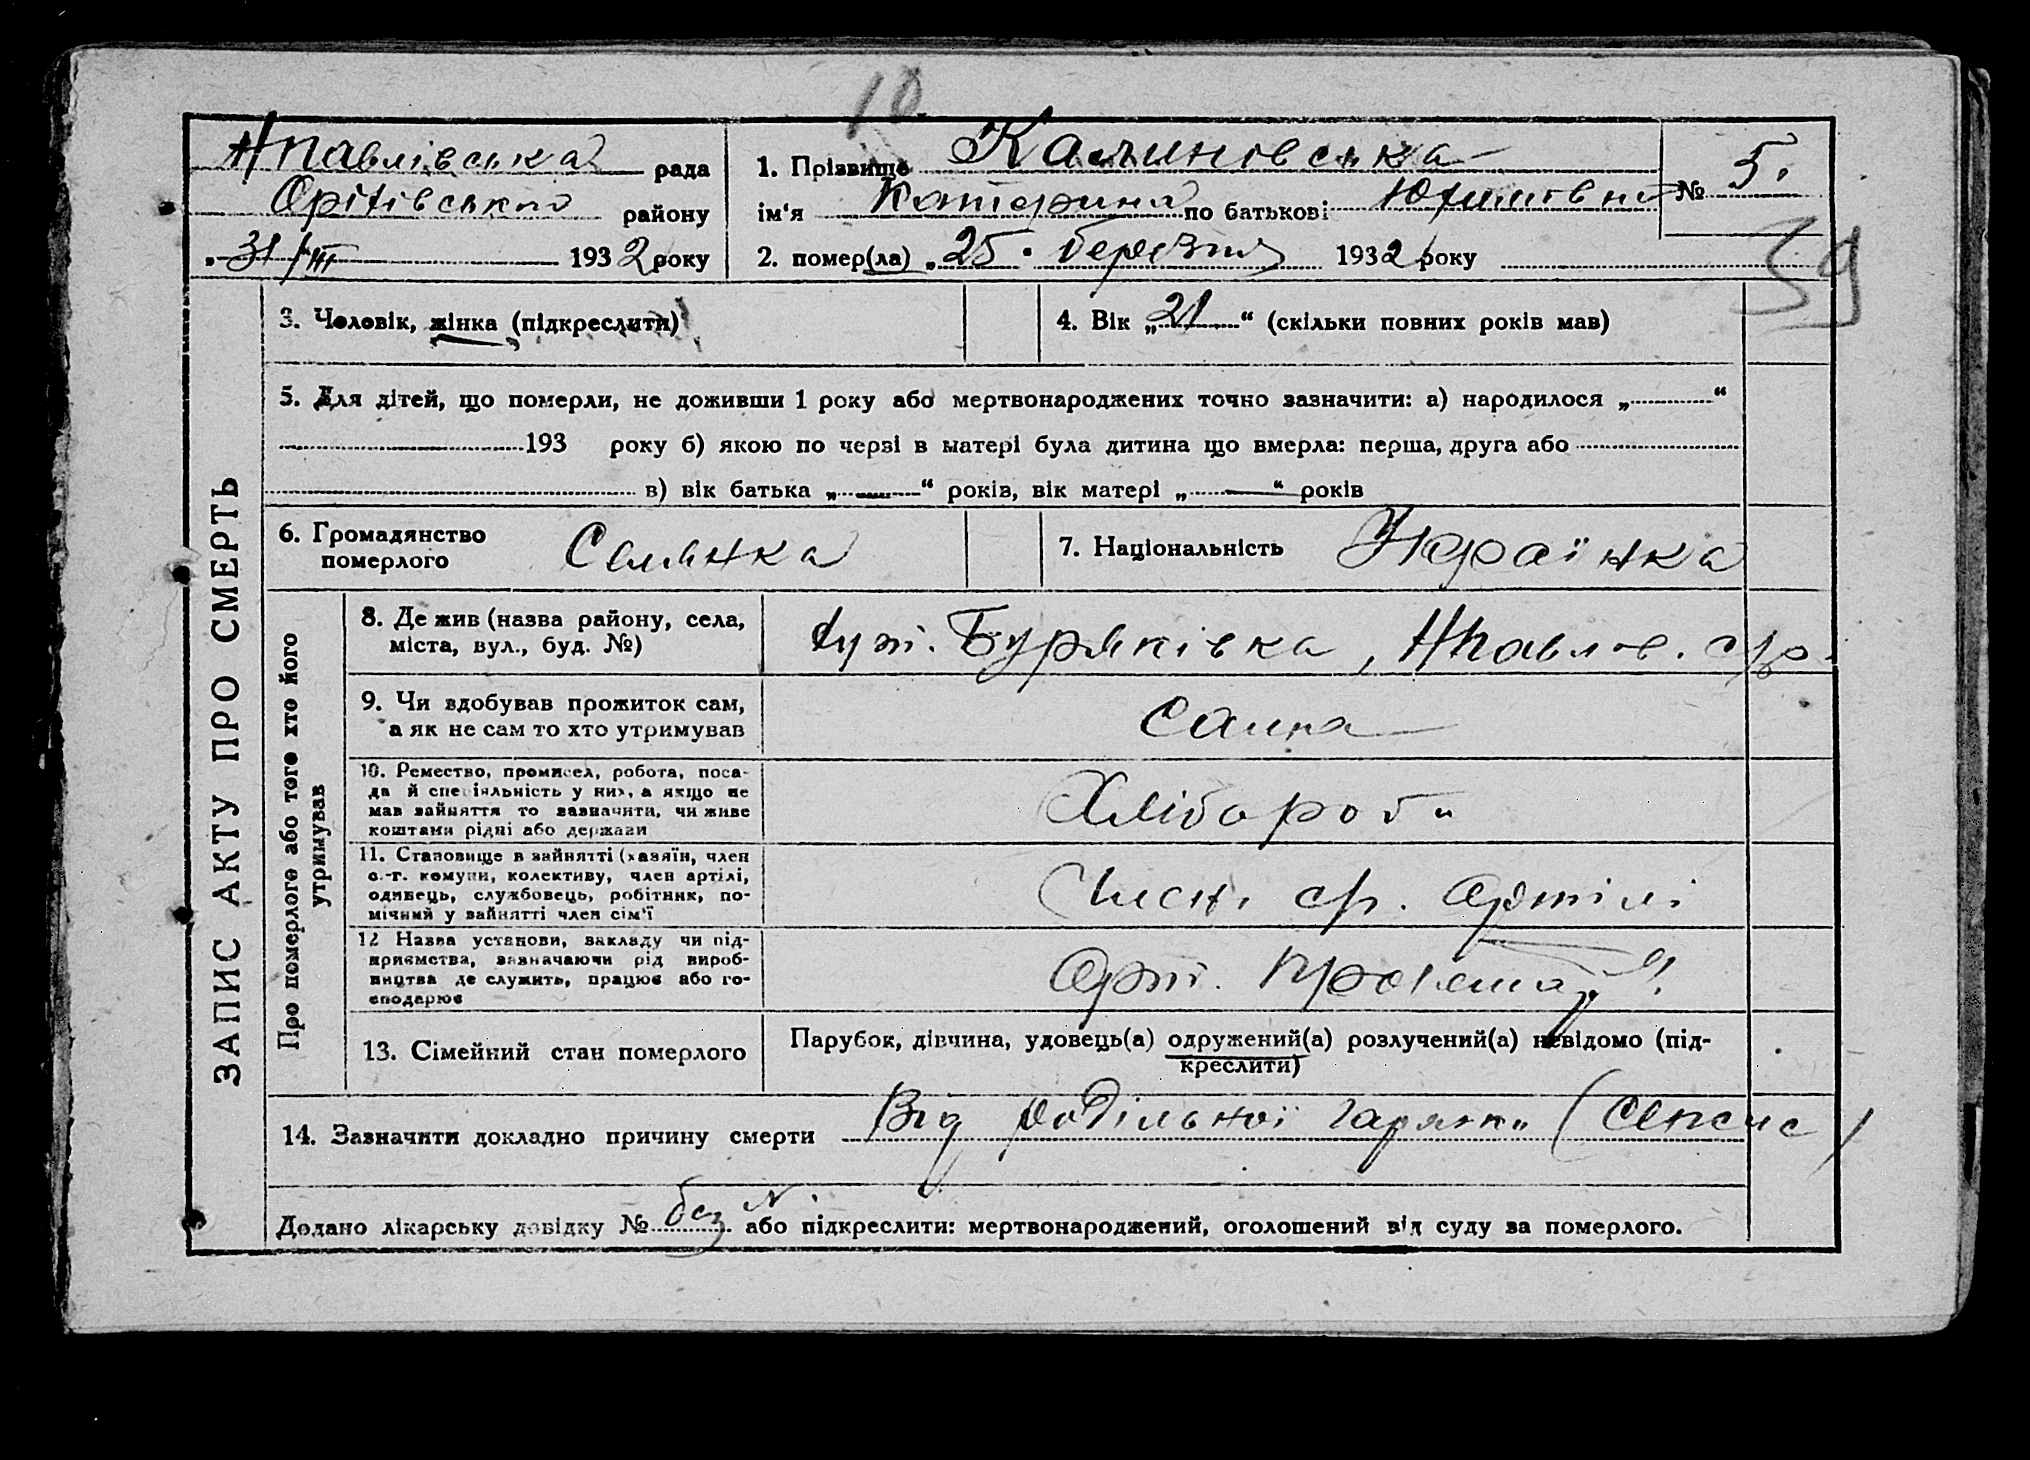 10.
Нпавлівська рада
Оріхівського району
„31/III 1932 року
1. Прізвище Калиновська
ім'я Катерина по батькові Юхимовна
№ 5.
2. помер(ла) „25" березня 1932 року
39
ЗАПИС АКТУ ПРО СМЕРТЬ
3. Чоловік, жінка (підкреслити)
4. Вік „21" (скільки повних років мав)
5. Для дітей, що померли, не доживши 1 року або мертвонароджених точно зазначити: а) народилося „ "
193 року б) якою по черзі в матері була дитина що вмерла: перша, друга або
в) вік батька „—" років, вік матері „—" років
6. Громадянство
померлого
Селянка
7. Національність Українка
Про померлого або того хто його
утримував
8. Де жив (назва району, села,
міста, вул., буд. №)
хут. Буряківка, Нпавлов. с/р.
9. Чи здобував прожиток сам,
а як не сам то хто утримував
Сама
10. Ремество, промисел, робота, поса-
да й спеціяльність у них, а якщо не
мав зайняття то зазначити, чи живе
коштами рідні або держави
Хлібороб
11. Становище в зайнятті (хазяїн, член
с.-г. комуни, колективу, член артілі,
одинець, службовець, робітник, по-
мічний у зайнятті член сім'ї
Член с/г. Артілі
12 Назва установи, закладу чи під-
приємства, зазначаючи рід вироб-
ництва де служить, працює або го-
сподарює
Арт.
13. Сімейний стан померлого
Парубок, дівчина, удовець(а) одружений(а) розлучений(а) невідомо (під-
креслити)
14. Зазначити докладно причину смерти Від родільної гарячки (Сепсис)
Додано лікарську довідку № без № або підкреслити: мертвонароджений, оголошений від суду за померлого.